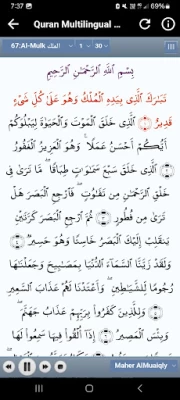 7:37 62%
Quran Multilingual ...
67.Al-Mulk الملك 1 - 30
بِسْمِ اللَّهِ الرَّحْمَٰنِ الرَّحِيمِ
تَبَارَكَ الَّذِي بِيَدِهِ الْمُلْكُ وَهُوَ عَلَىٰ كُلِّ شَيْءٍ
قَدِيرٌ ﴿١﴾ الَّذِي خَلَقَ الْمَوْتَ وَالْحَيَاةَ لِيَبْلُوَكُمْ
أَيُّكُمْ أَحْسَنُ عَمَلًا ۚ وَهُوَ الْعَزِيزُ الْغَفُورُ
﴿٢﴾ الَّذِي خَلَقَ سَبْعَ سَمَاوَاتٍ طِبَاقًا ۖ مَا تَرَىٰ فِي
خَلْقِ الرَّحْمَٰنِ مِن تَفَاوُتٍ ۖ فَارْجِعِ الْبَصَرَ هَلْ
تَرَىٰ مِن فُطُورٍ ﴿٣﴾ ثُمَّ ارْجِعِ الْبَصَرَ كَرَّتَيْنِ
يَنقَلِبْ إِلَيْكَ الْبَصَرُ خَاسِئًا وَهُوَ حَسِيرٌ ﴿٤﴾
وَلَقَدْ زَيَّنَّا السَّمَاءَ الدُّنْيَا بِمَصَابِيحَ وَجَعَلْنَاهَا
رُجُومًا لِّلشَّيَاطِينِ ۖ وَأَعْتَدْنَا لَهُمْ عَذَابَ السَّعِيرِ
﴿٥﴾ وَلِلَّذِينَ كَفَرُوا بِرَبِّهِمْ عَذَابُ جَهَنَّمَ ۖ
وَبِئْسَ الْمَصِيرُ ﴿٦﴾ إِذَا أُلْقُوا فِيهَا سَمِعُوا لَهَا
Maher AlMuaiqly